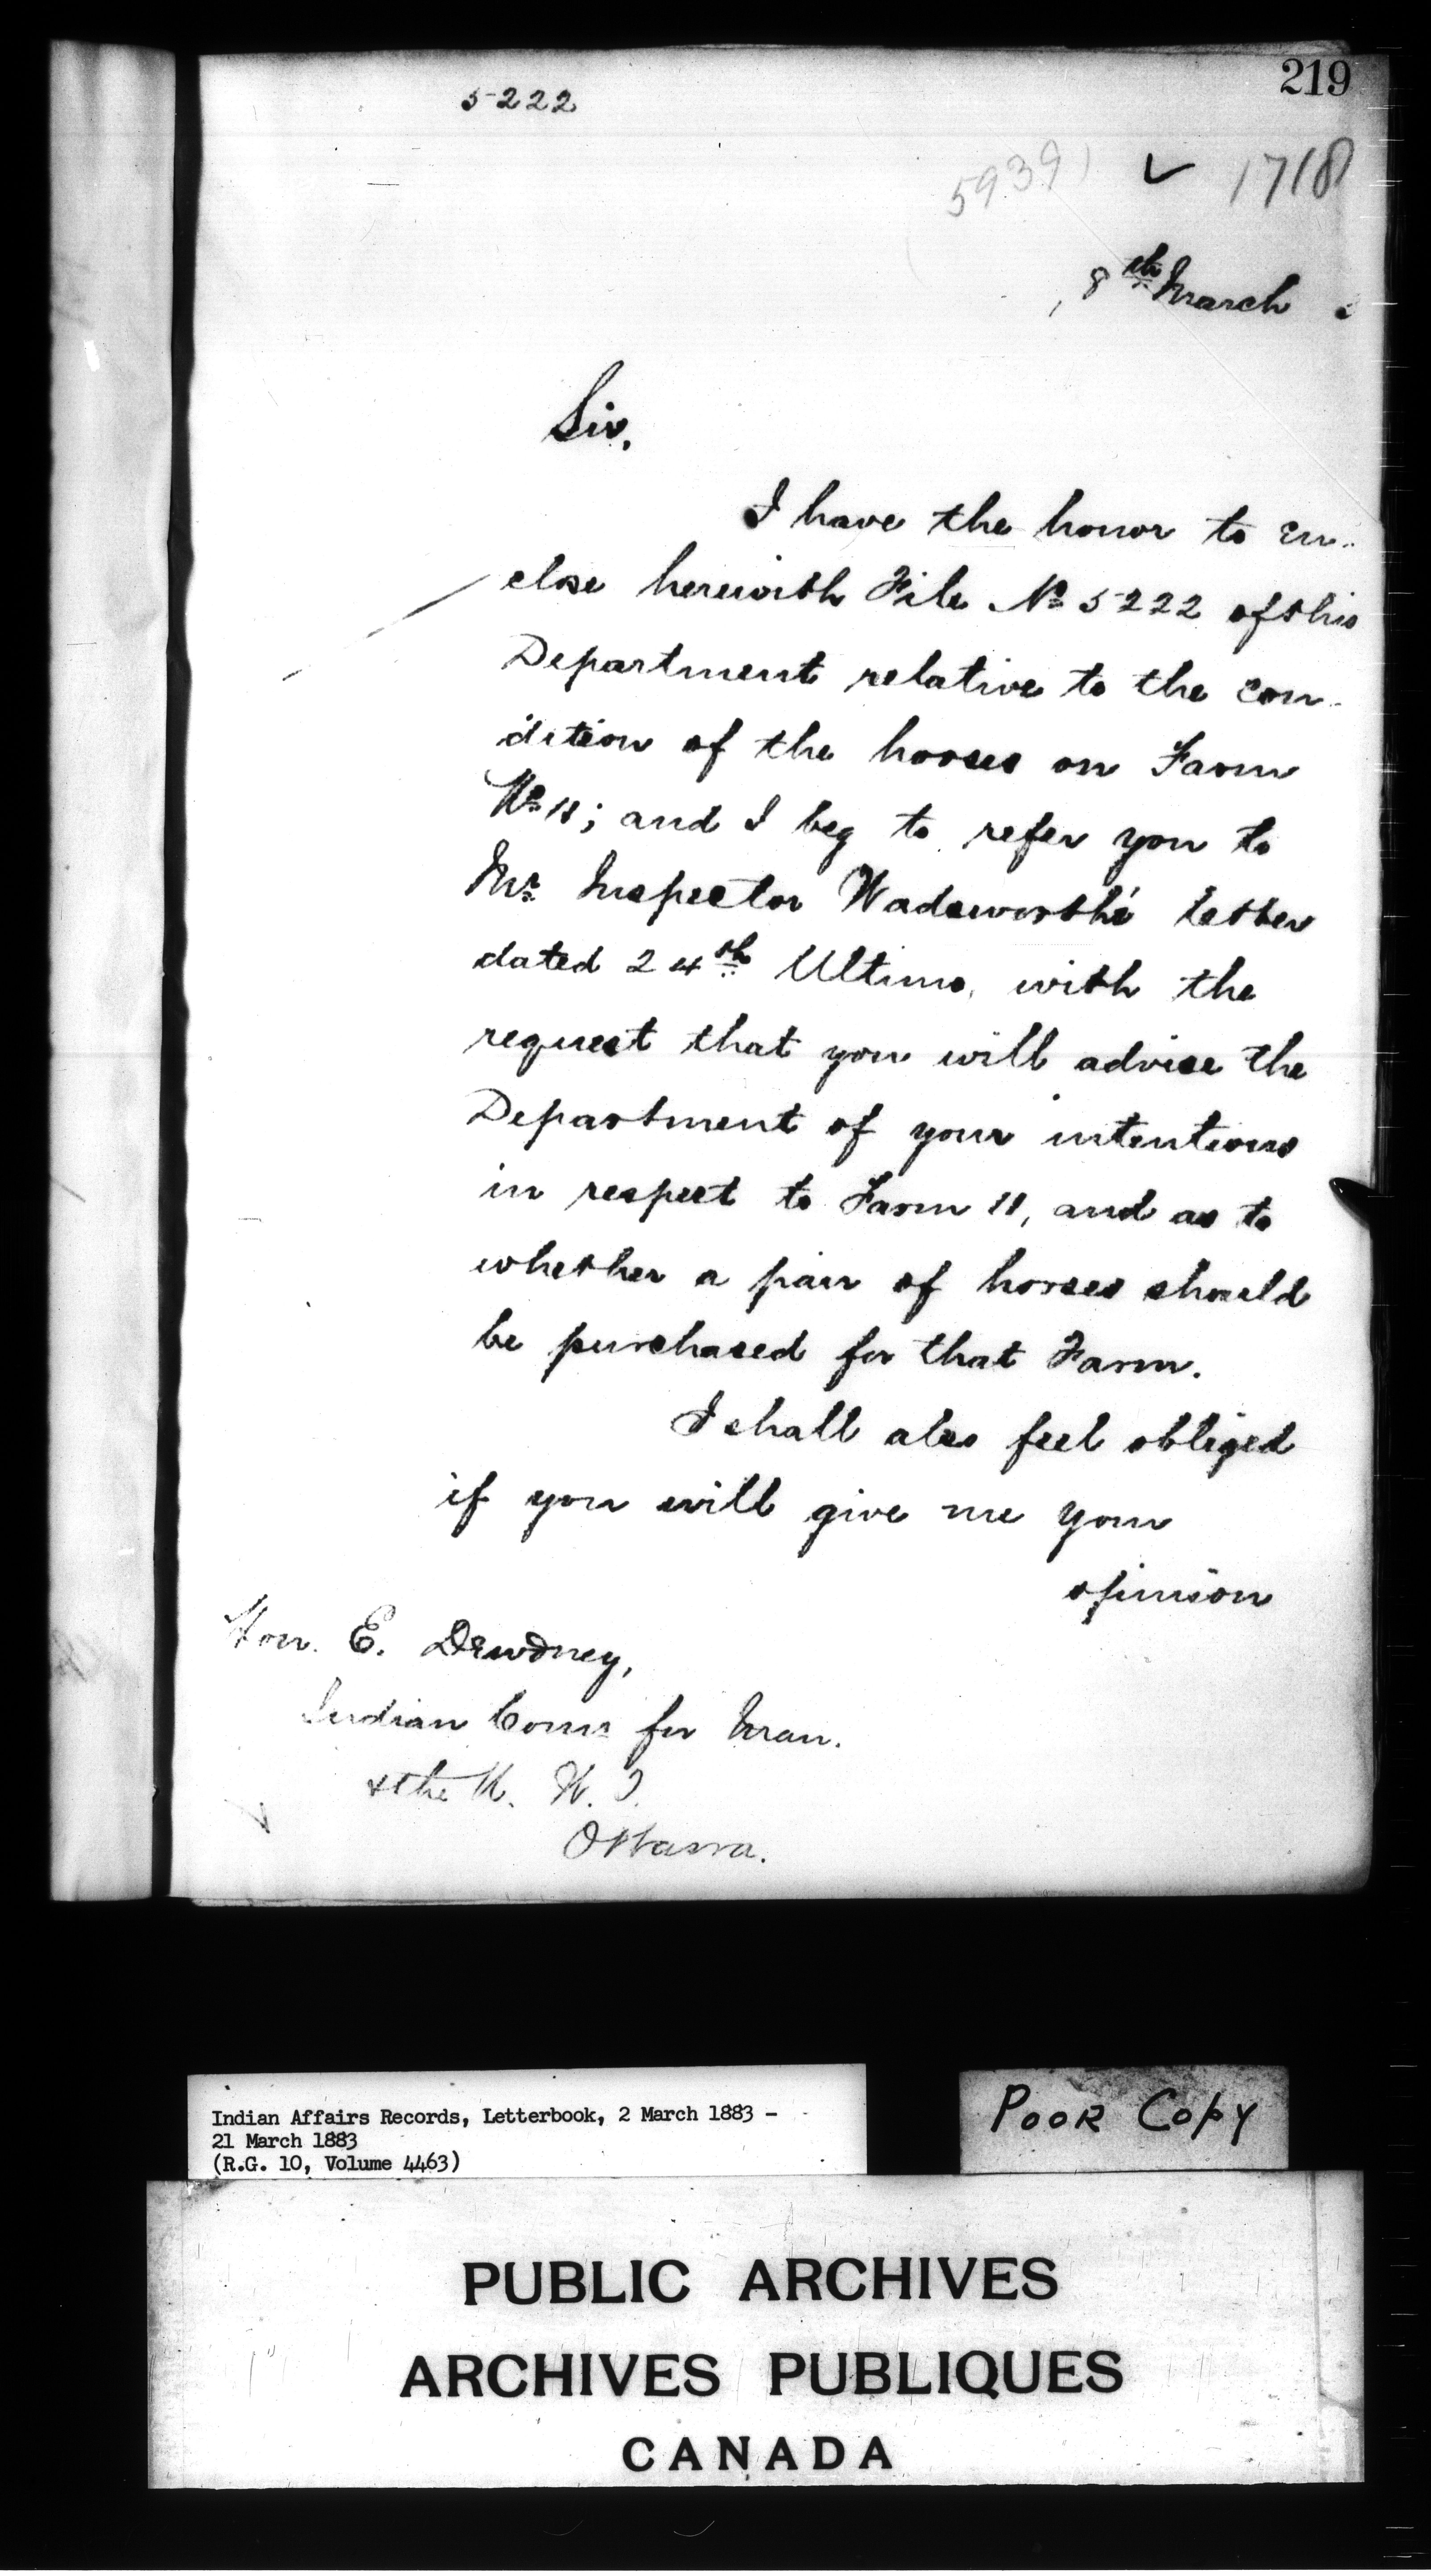 219
5222
5939
1718
8th March
Sir,
I have the honor to en-
close herewith File No 5222 of this
Department relative to the con-
dition of the horses on Farm
No 11; and I beg to refer you to
Mr. Inspector Wadsworth's letter
dated 24th Ultimo, with the
request that you will advise the
Department of your intentions
in respect to Farm 11, and as to
whether a pair of horses should
be purchased for that Farm.
I shall also feel obliged
if you will give me your
opinion
Hon. E. Dewdney,
Indian Comr for Man.
& the N. W. T.
Ottawa.
Indian Affairs Records, Letterbook, 2 March 1883 -
21 March 1883
(R.G. 10, Volume 4463)
POOR COPY
PUBLIC ARCHIVES
ARCHIVES PUBLIQUES
CANADA